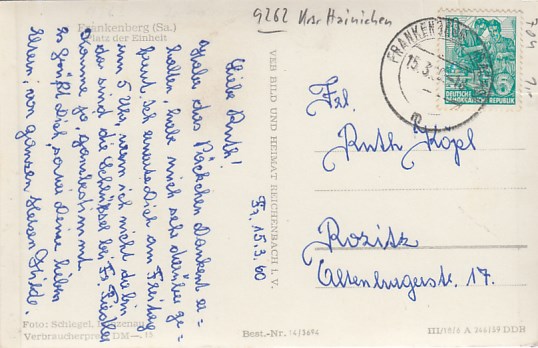 9262 Krs. Hainichen
Frankenberg (Sa.)
Platz der Einheit
Liebe Ruth!
das Päckchen dankend er=
halten, habe mich sehr darüber ge=
freut. Ich erwarte Dich am Freitag
um 5 Uhr, wenn ich nicht da bin,
so sind die Schlüssel bei Fr. Fiedler
komme ja, ganz bestimmt.
Es grüßt Dich, sowie Deine lieben
Eltern, von ganzen Herzen Hilde.
Fr, 15.3.60
VEB BILD UND HEIMAT REICHENBACH I. V.
FRANKENBERG
15.3.
DEUTSCHE
DEMOKRATISCHE REPUBLIK
Frl.
Ruth Kopl
Rozitz
Altenburgerstr. 17.
Foto: Schlegel,
Verbraucherpreis DM —.15
Best.-Nr. 14/3494
III/18/6 A 246/59 DDR